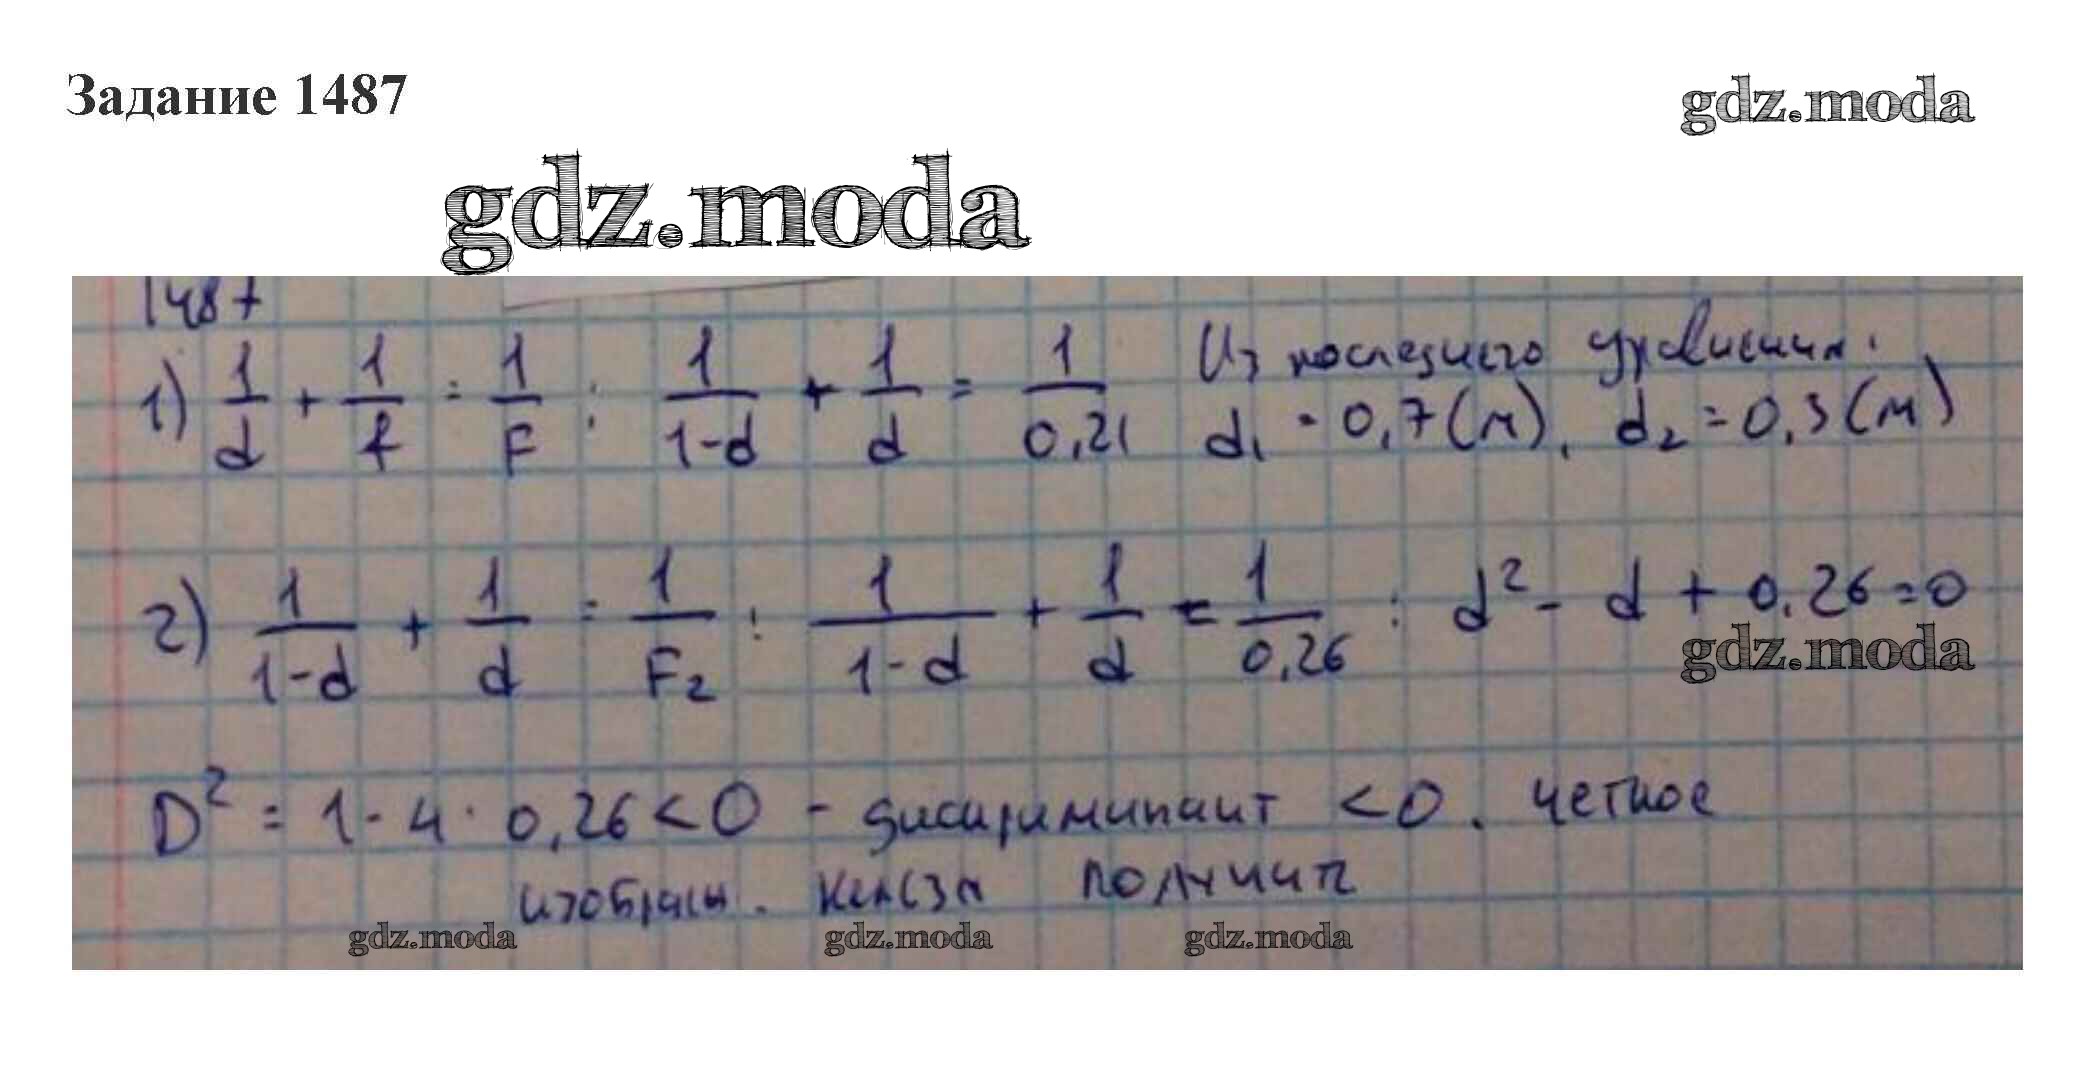 Задание 1487
gdz.moda
gdz.moda
1487
1) 1/d + 1/f = 1/F ; 1/(1-d) + 1/d = 1/0,21 Из последнего уравнения:
d₁ = 0,7 (м), d₂ = 0,3 (м)
2) 1/(1-d) + 1/d = 1/F₂ ; 1/(1-d) + 1/d = 1/0,26 ; d² - d + 0,26 = 0
gdz.moda
D² = 1 - 4 · 0,26 < 0 - дискриминант < 0. четкое
изображ. нельзя получить
gdz.moda gdz.moda gdz.moda